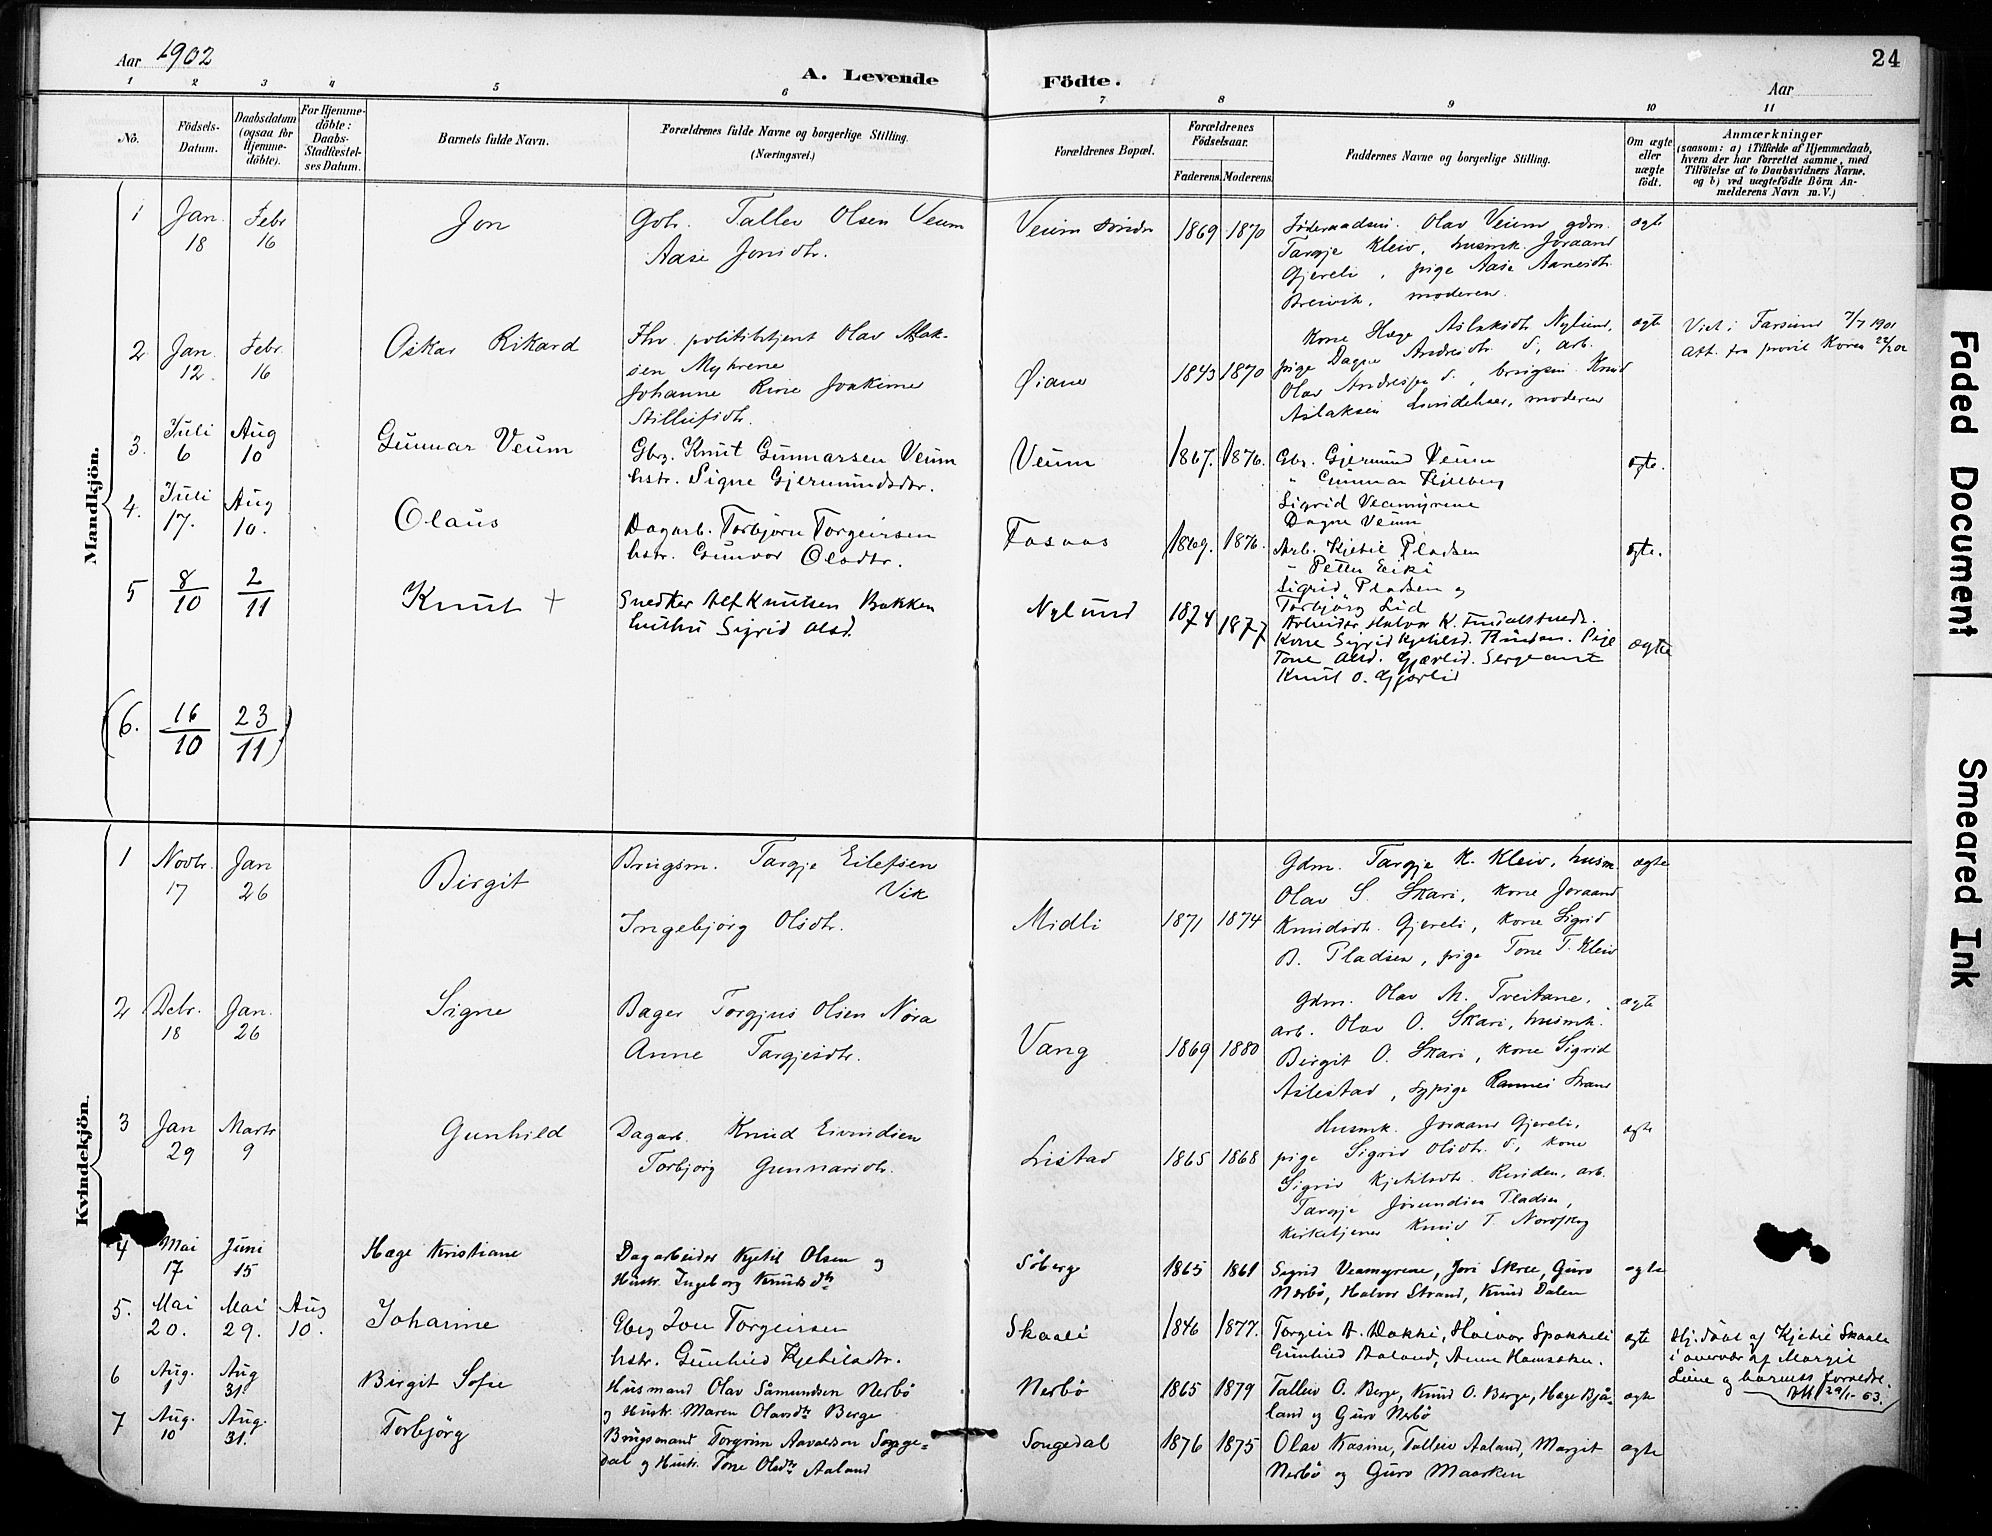 Aar 1902
24
A. Levende Födte.
Aar
1 2 3 4 5 6 7 8 9 10 11
No.
Födsels-Datum.
Daabsdatum (ogsaa for Hjemme-döbte).
For Hjemme-döbte: Daabs-Stadfæstel-ses Datum.
Barnets fulde Navn.
Forældrenes fulde Navne og borgerlige Stilling.
(Næringsvei.)
Forældrenes Bopæl.
Forældrenes Födselsaar.
Faderens. Moderens.
Faddernes Navne og borgerlige Stilling.
Om ægte eller uægte födt.
Anmærkninger
(saasom: a) i Tilfælde af Hjemmedaab,
hvem der har forrettet samme, med
Tilföielse af to Daabsvidners Navne,
og b) ved uægtefödte Börn An-
melderens Navn m. V.)
Mandkjön.
1 Jan. 18 Febr 16 Jon
Gbr. Tallev Olsen Veum
Aase Jonsdtr.
Veum 1869 1870
Olav Veum gdm.
Targje Kleiv, husmk. Joraand
Gjereli, pige Aase Aanesdtr.
Breivik, moderen.
ægte
2 Jan. 12. Febr. 16 Oskar Rikard
Fhv. politibetjent Olav Aslak-
sen Myhrene
Johanne Rine Joakime
Øiane 1843 1870
Kone Hæge Aslaksdtr Nylund,
pige Dagne Andresdtr. S, arb.
Olav S., brugsm. Knud
Aslaksen moderen
ægte
Viet i Farsund 7/7 1901
Att. fra provst Koren
3. Juli 6 Aug 10 Gunnar Veum
Gbrg. Knut Gunnarsen Veum
hstr. Signe Gjermundsdtr.
Veum 1867. 1876.
Gbr. Gjermund Veum
" Gunnar
Sigrid Veamyrene
Dagne Veum
ægte.
4. Juli 17. Aug 10. Olaus
Dagarb. Torbjørn Torgeirsen
hstr. Gunvor Olsdtr.
Fosaas 1869. 1876.
Arb. Kjetil Pladsen
" Petter Eiki
Sigrid Pladsen og
Torbjörg Lid
ægte.
5 8/10 2/11 Knut +
Snedker Alf Knutsen Bakken
hustru Sigrid Olsd.
Nylund 1874 1877
Arbeider Halvor K.
Kone Sigrid Kjetilsd. Pige
Tone Olsd. Gjærlid. Sergeant
Knut O. Gjærlid
ægte
(6. 16/10 23/11)
Kvindekjön.
1 Novbr. 17 Jan 26 Birgit
Brugsm. Targje Eilefsen
Vik
Ingebjørg Olsdtr.
Midli 1871 1874
Gdm. Targje K. Kleiv, husm.
Olav S. Skari, kone Joraand
Knudsdtr. Gjereli, kone Sigrid
B. Pladsen, pige Tone T. Kleiv
ægte
2 Debr. 18 Jan. 26 Signe
Bager Torgjus Olsen Nøra
Anne Targjesdtr.
Vang 1869 1880
Gdm. Olav M. Tveitane,
arb. Olav O. Skari, husmk.
Birgit O. Skari, kone Sigrid
Aslestad, sypige Rannei Strand
ægte
3 Jan 29 Marts 9 Gunhild
Dagarb. Knud Eivindsen
Torbjørg Gunnarsdtr.
Listad 1865 1868
Husmk. Joraand Gjereli,
pige Sigrid Olsdtr. S, kone
Sigrid Kjetilsdtr. Rinden, arb.
Targje Jørundsen Pladsen,
kirketjener Knud T. Nordskog
ægte
4 Mai 17 Juni 15 Hæge Kristiane
Dagarbeider Kjetil Olsen og
Hustr. Ingeborg Knutsdtr
Söberge 1865 1861
Sigrid Veamyrene, Jori Skree, Guro
Nerbö, Halvor Strand, Knud Dalen
ægte
5. Mai 20. Mai 29. Aug 10. Johanne
Gbrg Jon Torgeirsen
hstr. Gunhild Kjetilsdtr.
Skaali 1846 1877.
Torgeir A. Dokki, Halvor Spokkeli
Gunhild Aaland, Anne
ægte
Hj.döbt af Kjetil Skaali
i overvær af Margit
Liene og barnets foreldre.
6 Aug. 1 Aug 31. Birgit Sofie
Husmand Olav Såmundsen Nerbö
og Hustr. Maren Olavsdtr Berge
Nerbö 1865 1879
Talleiv O. Berge, Knud O. Berge, Hæge Bjå-
land og Guro Nerbö
ægte
7 Aug. 10 Aug. 31. Torbjörg
Brugsmand Torgrim Aavaldson Songe-
dal og Hustr. Tone Olsdtr Aaland
Songedal 1876 1875
Olav Kasine, Talleiv Aaland, Margit
Nerbö og Guro Maarken
ægte
Faded Document
Smeared Ink